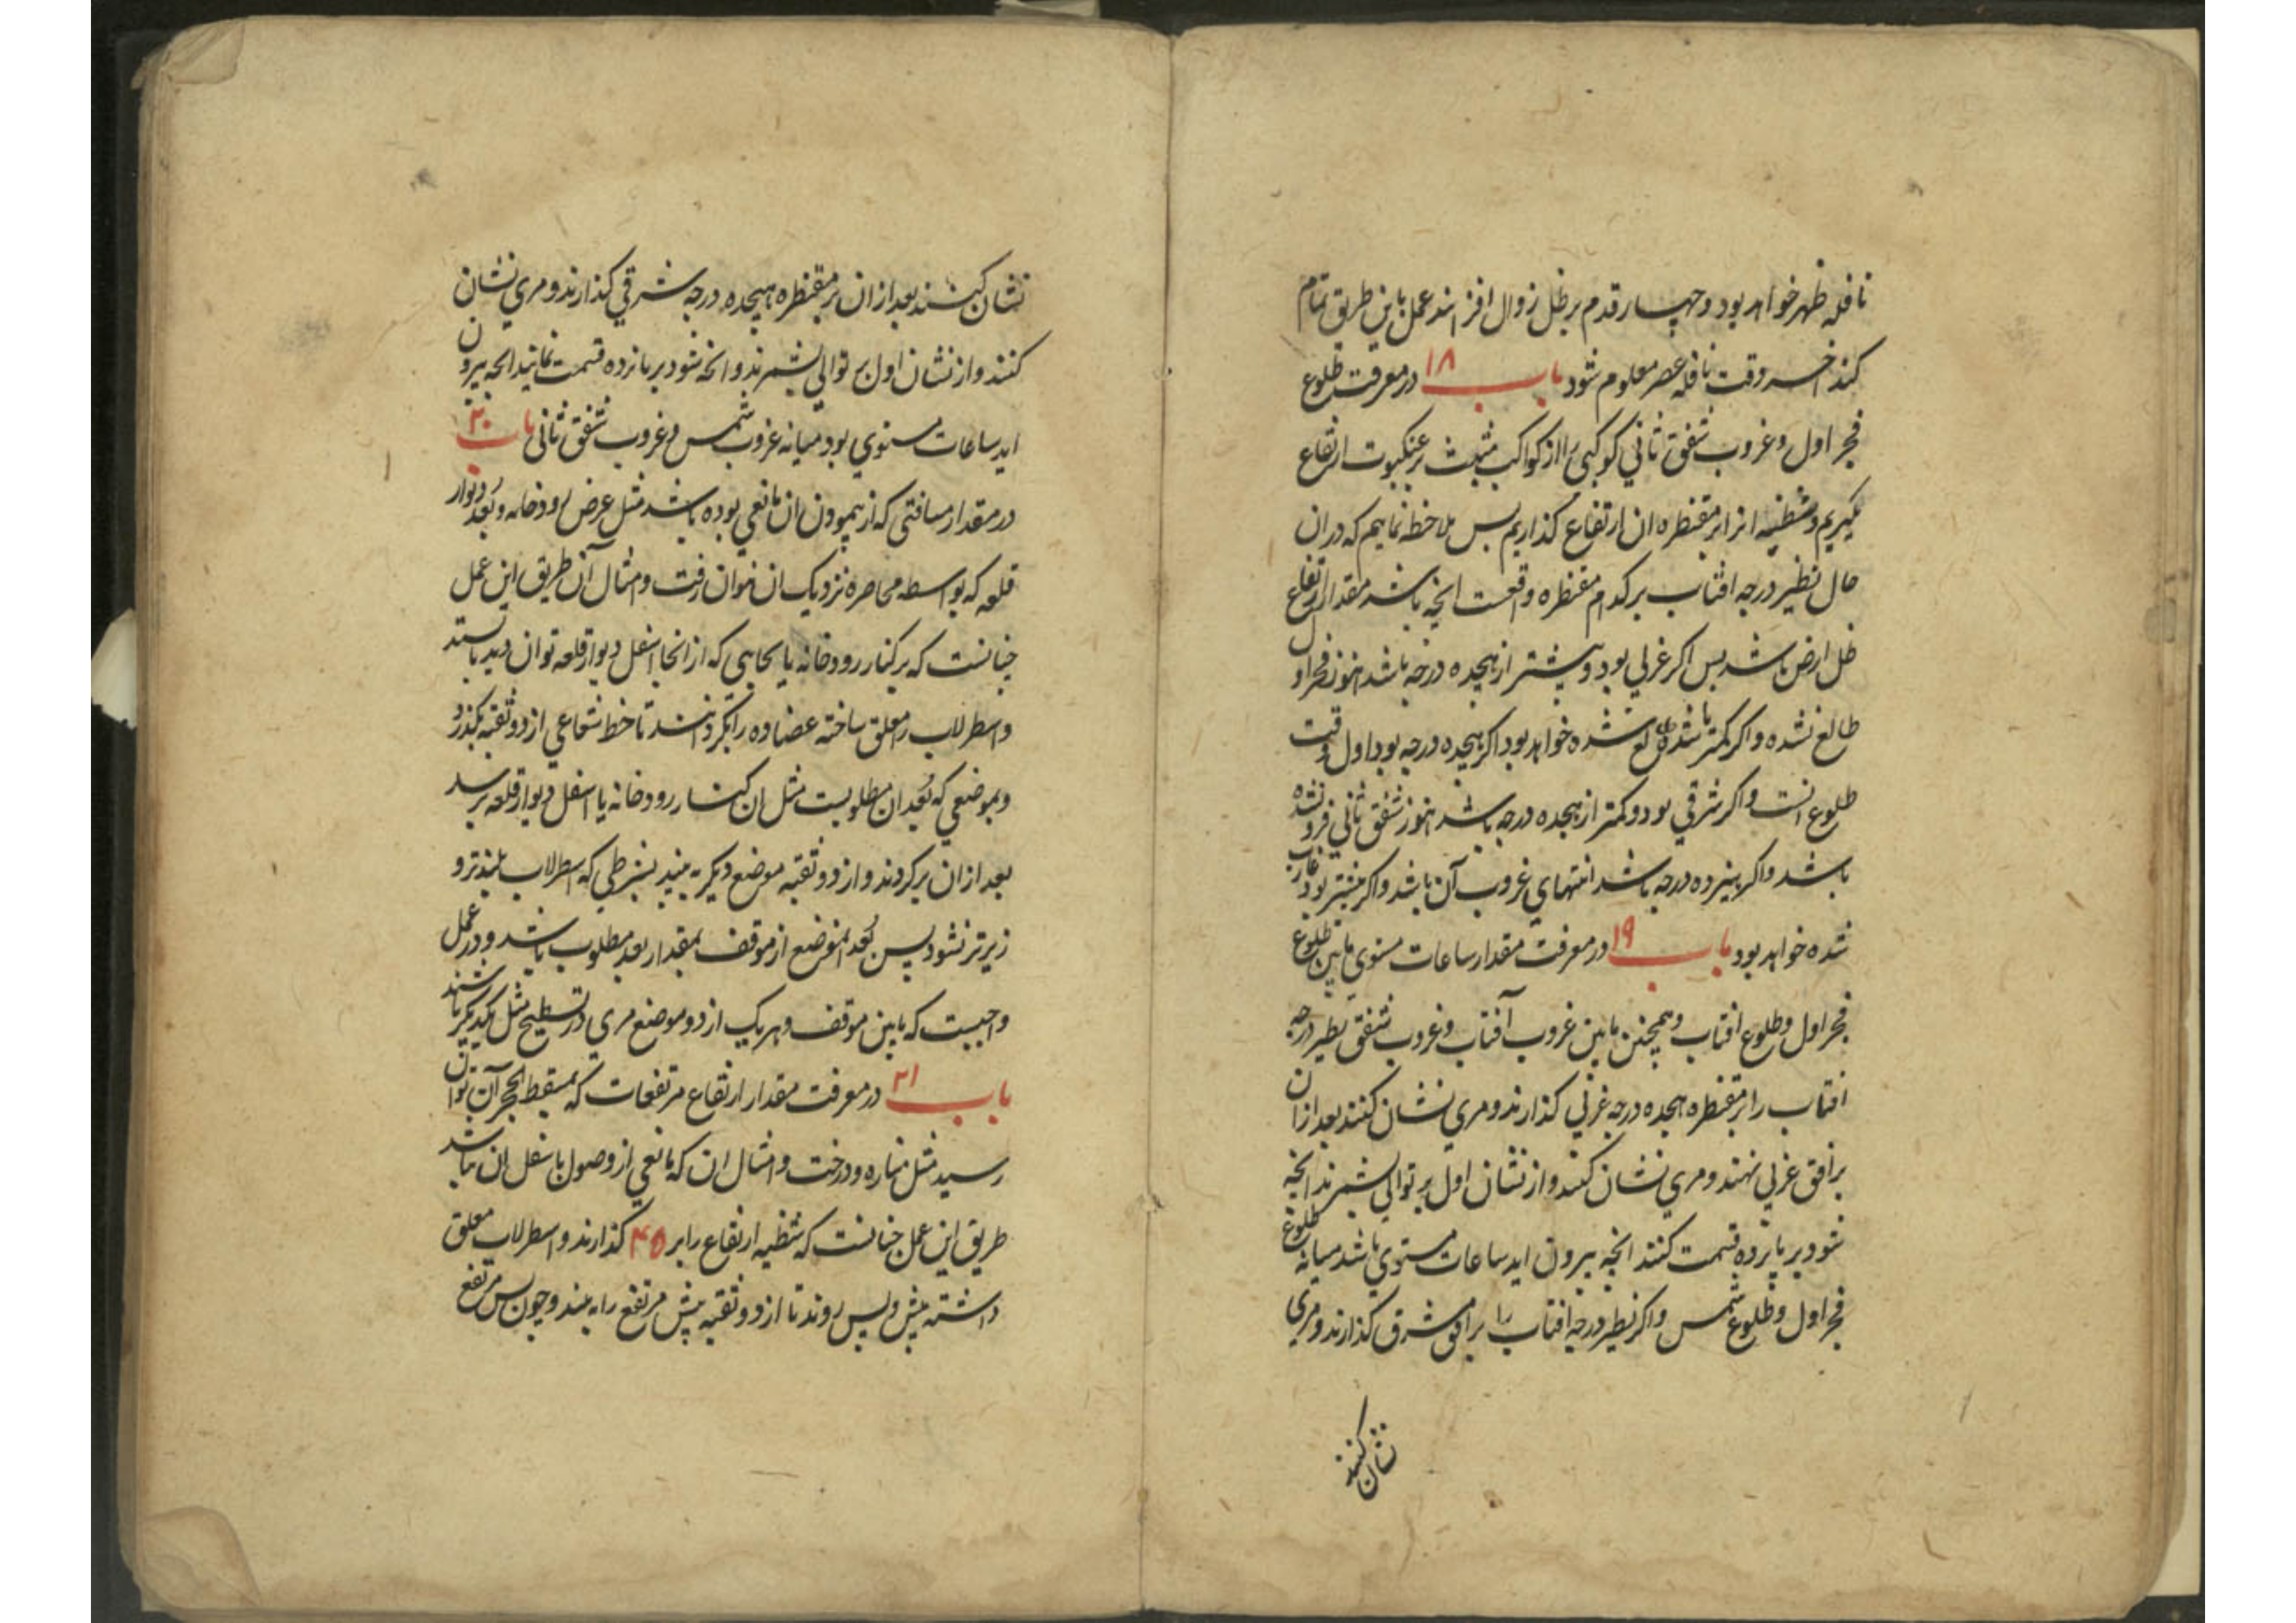 نافله ظهر خواهد بود و چهار قدم بر ظل زوال افزایند عمل باین طریق تمام
کنند اخر وقت نافله عصر معلوم شود باب ۱۸ در معرفت طلوع
فجر اول و غروب شفق ثانی کوکبی را از کواکب مثبت بر عنکبوت ارتفاع
بگیریم و شظیه انرا بر مقنطره ان ارتفاع کذاریم پس ملاحظه نماییم که در ان
حال نظیر درجه افتاب بر کدام مقنطره واقعست انچه باشد مقدار ارتفاع
ظل ارض باشد پس اکر غربی بود و بیشتر از هیجده درجه باشد هنوز فجر اول
طالع نشده و اکر کمتر باشد طالع شده خواهد بود اکر هیجده درجه بود اول وقت
طلوع انست و اکر شرقی بود و کمتر از هجده درجه باشد هنوز شفق ثانی فرو نشده
باشد و اکر هیژده درجه باشد انتهای غروب آن باشد و اکر بیشتر بود غارب
شده خواهد بود باب ۱۹ در معرفت مقدار ساعات مستوی مابین طلوع
فجر اول و طلوع افتاب و همچنین مابین غروب آفتاب و غروب شفق نظیر درجه
افتاب را بر مقنطره هجده درجه غربی کذارند و مری نشان کنند بعد ازان
بر افق غربی نهند و مری نشان کنند و از نشان اول بر توالی بشمرند انچه
شود بر پانزده قسمت کنند انچه بیرون اید ساعات مستوی باشد میانه طلوع
فجر اول و طلوع شمس و اکر نظیر درجه افتاب را بر افق مشرق کذارند و مری
نشان کنند
نشان کنند بعد ازان بر مقنطره هیجده درجه شرقی کذارند و مری نشان
کنند و از نشان اول بر توالی بشمرند و انچه شود بر پانزده قسمت نمایند انچه بیرون
اید ساعات مستوی بود میانه غروب شمس و غروب شفق ثانی باب ۲۰
در مقدار مسافتی که از پیمودن ان مانعی بوده باشد مثل عرض رودخانه و بُعد دیوار
قلعه که بواسطه محاصره نزدیک ان نتوان رفت و امثال آن طریق این عمل
چنانست که بر کنار رودخانه یا بجایی که از انجا اسفل دیوار قلعه توان دید بایستد
و اسطرلاب را معلق ساخته عضاده را بکردانند تا خط شعاعی از دو ثقبه بکذرد
و بموضعی که بُعد ان مطلوبست مثل ان کنار رودخانه یا اسفل دیوار قلعه برسد
بعد ازان برکردند و از دو ثقبه موضع دیکر به بینند بشرطی که اسطرلاب بلندتر و
زیرتر نشود پس بُعد انموضع از موقف بمقدار بعد مطلوب باشد و در عمل
واجبست که مابین موقف و هر یک از دو موضع مری در تسطیح مثل یکدیکر باشند
باب ۲۱ در معرفت مقدار ارتفاع مرتفعات که بمسقط الحجر آن توان
رسید مثل مناره و درخت و امثال ان که مانعی از وصول باسفل ان نباشد
طریق این عمل چنانست که شظیه ارتفاع را بر ۴۵ کذارند و اسطرلاب معلق
داشته پیش و پس روند تا از دو ثقبه پیش مرتفع را به بیند و چون پس مرتفع